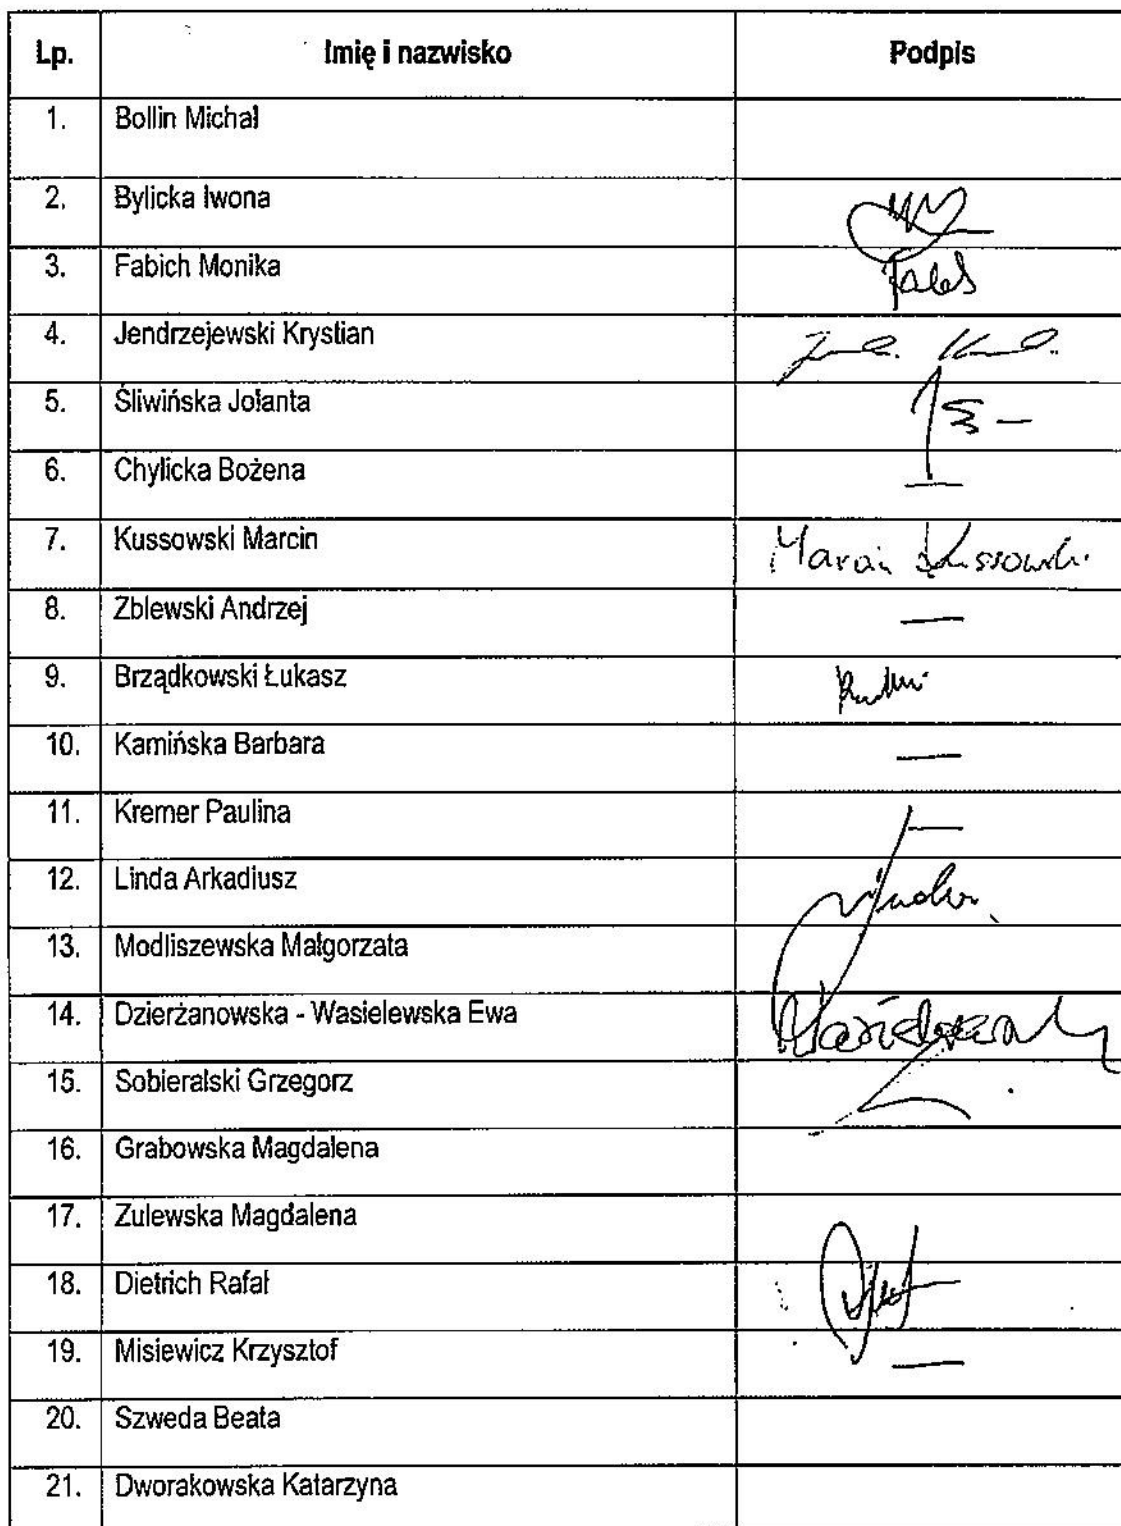 Lp. Imię i nazwisko Podpis
1. Bollin Michał
2. Bylicka Iwona
3. Fabich Monika
4. Jendrzejewski Krystian
5. Śliwińska Jolanta
6. Chylicka Bożena —
7. Kussowski Marcin Marcin Kussowski
8. Zblewski Andrzej —
9. Brządkowski Łukasz
10. Kamińska Barbara —
11. Kremer Paulina —
12. Linda Arkadiusz
13. Modliszewska Małgorzata
14. Dzierżanowska - Wasielewska Ewa
15. Sobieralski Grzegorz
16. Grabowska Magdalena
17. Zulewska Magdalena
18. Dietrich Rafał
19. Misiewicz Krzysztof —
20. Szweda Beata
21. Dworakowska Katarzyna